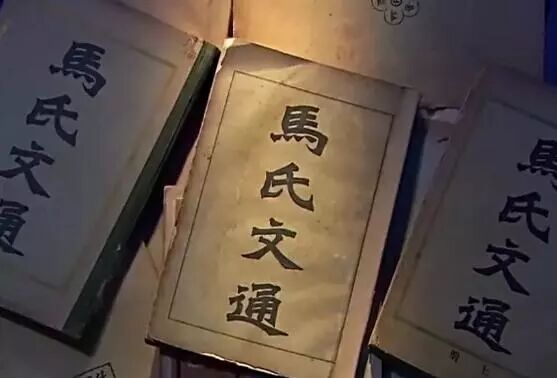 馬氏文通
馬氏文通
馬氏文通
上冊